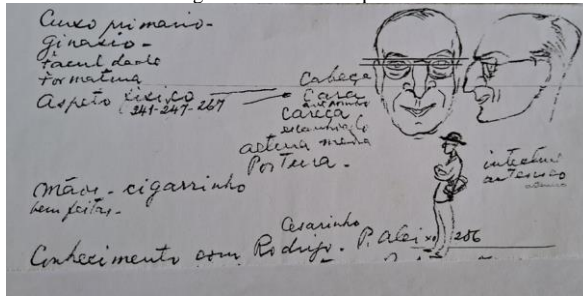 Curso primario -
Ginasio -
Faculdade
Formatura
Aspeto fisico
(241-247-267
Cabeça
Cara
Careca
altura media
Postura -
Mãos - cigarrinho
bem feitas -
Cesarinho
Conhecimento com Rodrigo. P. Aleixo 256